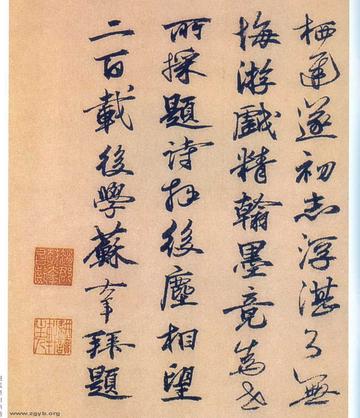 栖遁遂初志浮湛了無
悔游戲精翰墨竟為世
所採題詩拜後塵相望
二百載後學蘇大年拜題
www.zgyb.org